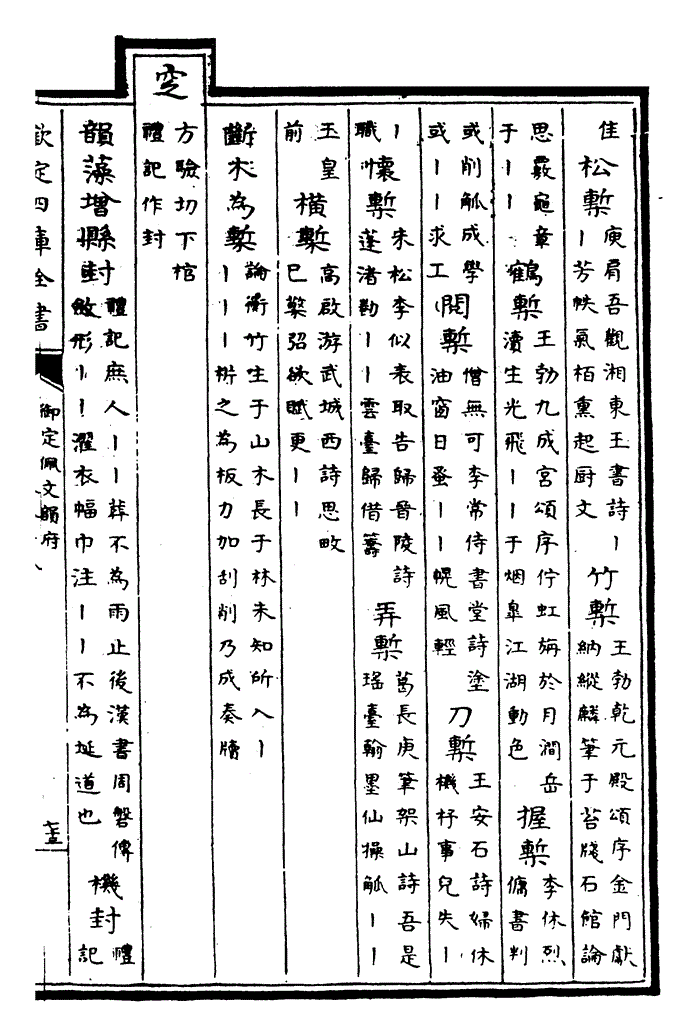 佳
松槧
庾肩吾觀湘東王書詩丨
丨芳帙氣栢熏起厨文
竹槧
王勃乾元殿頌序金門獻
納縱麟筆于苔牋石館論
思覈龜章
于丨丨
鶴槧
王勃九成宮頌序佇虹旃於月澗岳
瀆生光飛丨丨于烟皋江湖動色
握槧
李休烈
傭書判
或削觚成學
或丨丨求工
閱槧
僧無可李常侍書堂詩塗
油窗日蚤丨丨幌風輕
刀槧
王安石詩婦休
機杼事兒失丨
丨
職
懷槧
朱松李似表取告歸晉陵詩
蓬渚勤丨丨雲臺歸借籌
弄槧
葛長庚筆架山詩吾是
瑶臺翰墨仙操觚丨丨
玉皇
前
橫槧
高啟游武城西詩思畋
已檠弨欲賦更丨丨
斷木為槧
論衡竹生于山木長于林未知所入丨
丨丨丨析之為板力加刮削乃成奏牘
窆
方驗切下棺
禮記作封
韻藻增縣封
禮記庶人丨丨葬不為雨止後漢書周磐傳
斂形丨丨濯衣幅巾注丨丨不為埏道也
機封
禮
記
欽定四庫全書
御定佩文韻府